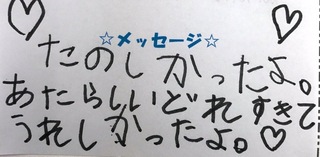 ☆メッセージ☆
たのしかったよ。
あたらしいどれすきて
うれしかったよ。♡